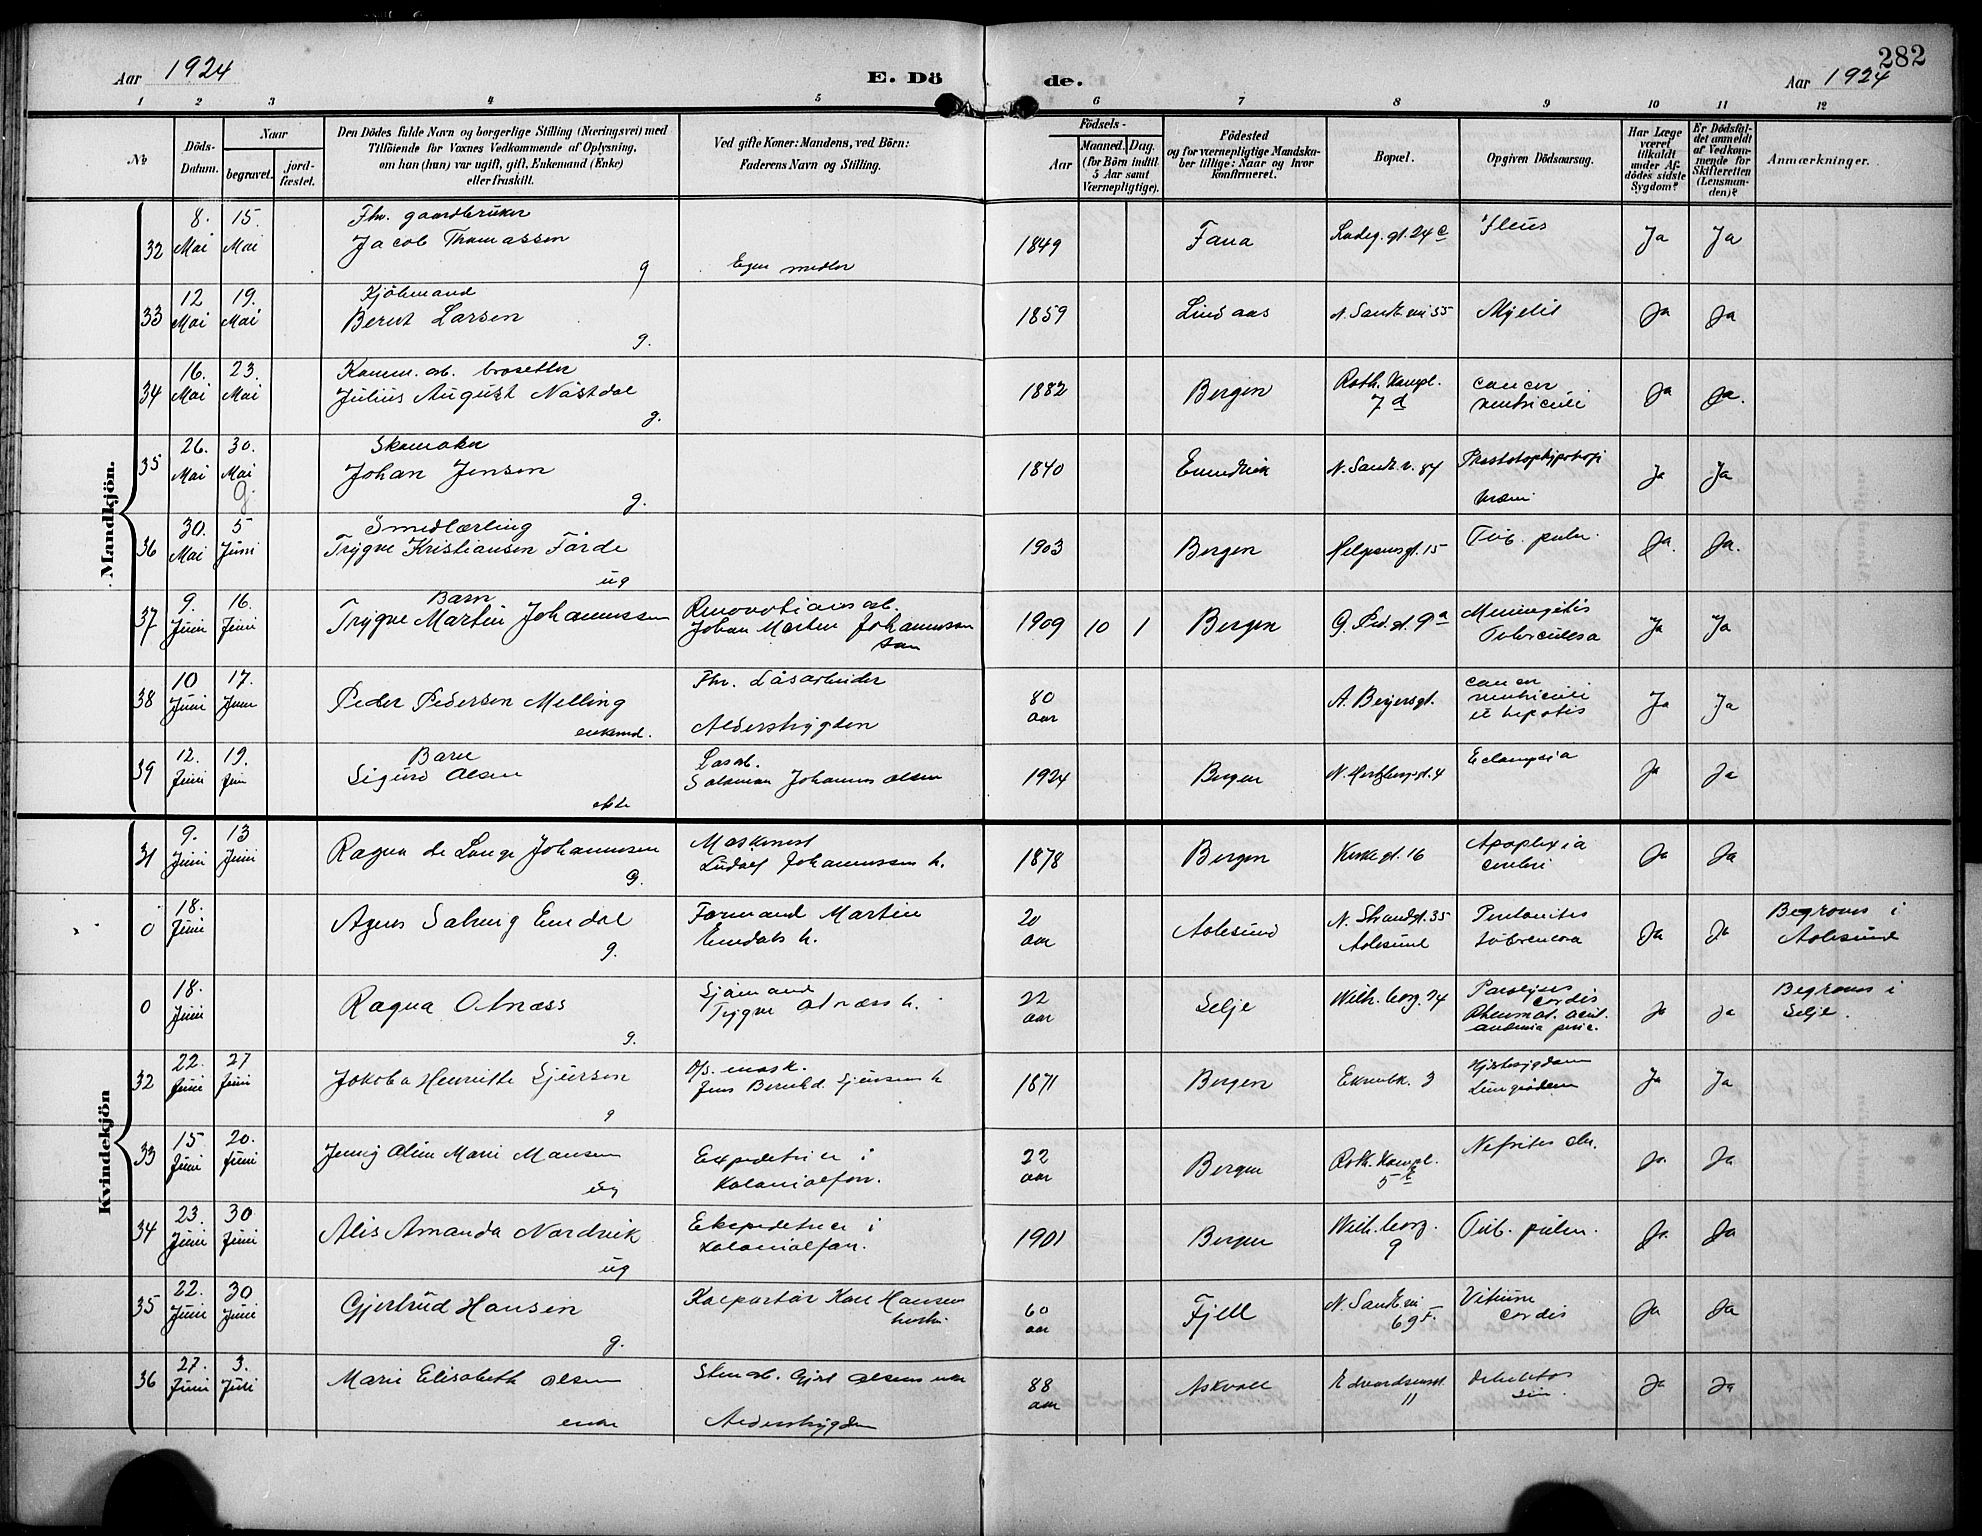 Aar 1924
E. Dö
de.
282
Aar 1924
1 2 3 4 5 6 7 8 9 10 11 12
No
Döds-
Datum.
Naar
begravet.
jord-
fæstet.
Den Dödes fulde Navn og borgerlige Stilling (Næringsvei) med
Tilföiende for Voxnes Vedkommende af Oplysning,
om han (hun) var ugift, gift, Enkemand (Enke)
eller fraskilt.
Ved gifte Koner: Mandens, ved Börn:
Faderens Navn og Stilling.
Födsels-
Aar
Maaned. Dag.
(for Börn indtil
5 Aar samt
Værnepligtige).
Födested
og for værnepligtige Mandska-
ber tillige: Naar og hvor
konfirmeret.
Bopæl.
Opgiven Dödsaarsag.
Har Læge
været
tilkaldt
under Af-
dödes sidste
Sygdom?
Er Dödsfal-
det anmeldt
af Vedkom-
mende for
Skifteretten
(Lensman-
den)?
Anmærkninger.
Mandkjön.
32
8. Mai
15. Mai
Fhv. gaardbruker
Jacob Thomassen
g
Egne midler
1849
Fana
Ladeg. gt. 24 c
Ileus
Ja
Ja
33
12 Mai
19. Mai
Kjöbmand
Bernt Larsen
g.
1859
Lindaas
N. Sandk. vei 55
Myelit
Ja
Ja
34
16. Mai
23. Mai
Komm. arb.
Julius August Nöstdal
g.
1882
Bergen
Roth. Kompl.
7 d
cancer
ventriculi
Ja
Ja.
35
26. Mai
30. Mai
g.
Skomaker
Johan Jensen
g.
1840
N. Sandk. v. 84
Ja
Ja
36
30. Mai
5 Juni
Smedlærling
Trygve Kristiansen Förde
ug
1903
Bergen
Helgesensgt. 15
Tub. pulm.
Ja.
Ja.
37
9. Juni
16. Juni
Barn
Trygve Martin Johannessen
Renovationsarb.
Johan Martin Johannessen
sön
1909
10
1
Bergen
G. Ped. gt. 9 a
Meningitis
Tuberculosa
Ja
Ja
38
10 Juni
17. Juni
Peder Pedersen Melling
enkemd.
Fhv. Lösarbeider
Alderstrygden
80
aar
A. Beyersgt.
cancer
ventriculi
et hepatis
Ja
Ja
39
12. Juni
19. Juni
Barn
Sigurd Olsen
ekte
Lösarb.
Salomon Johannes Olsen
1924
Bergen
N. Hertzbergsgt. 4
Eclampsia
Ja
Ja
Kvindekjön
31
9. Juni
13 Juni
Ragna de Lange Johannessen
g.
Maskinist
Ludolf Johannessen h.
1878
Bergen
Kirkegt. 16
Apoplexia
cerebri
Ja
Ja
0
18. Juni
Agnes Solveig Emdal
g.
Formand Martin
Emdals h.
20
aar
Aalesund
N. Strandgt. 35
Aalesund
Peritonitis
tuberculosa
Ja
Ja
Begraves i
Aalesund
0
18. Juni
Ragna Otnæss
g.
Sjömand
Trygve Otnæss h.
22
aar
Selje
Wilh. Corg. 24
Paralysis
cordis
Rheumat. acut.
anæmia pernic.
Ja
Ja
Begraves i
Selje.
32
22. Juni
27 Juni
Jakoba Henriette Sjursen
g
D/s. mask.
Jens Bernhd. Sjursens h
1871
Bergen
Ekrenbk. 3
Hjertesygdom
Lungeödem
Ja
Ja
33
15 Juni
20. Juni
Jenny Oline Marie Monsen
ug
Expeditrice i
Kolonialforr.
22
aar
Bergen
Roth. Kompl.
Nefritis chr.
Ja
Ja
34
23. Juni
30 Juni
Alis Amanda Nordvik
ug
Ekspeditrice i
kolonialforr.
1901
Bergen
Wilh. Corg.
9
Tub. pulm.
Ja
Ja
35
22. Juni
30 Juni
Gjertrud Hansen
g.
Kolportör Karl Hansens
hustr.
60
aar
Fjell
N. Sandk. vei
69 F
Vitium
cordis
Ja
Ja
36
27. Juni
3. Juli
Marie Elisabeth Olsen
enke
Stenarb. Gjert Olsens enke
Alderstrygden
88
aar
Askvoll
Edvardsensgt.
11
debilitas
sen.
Ja
Ja